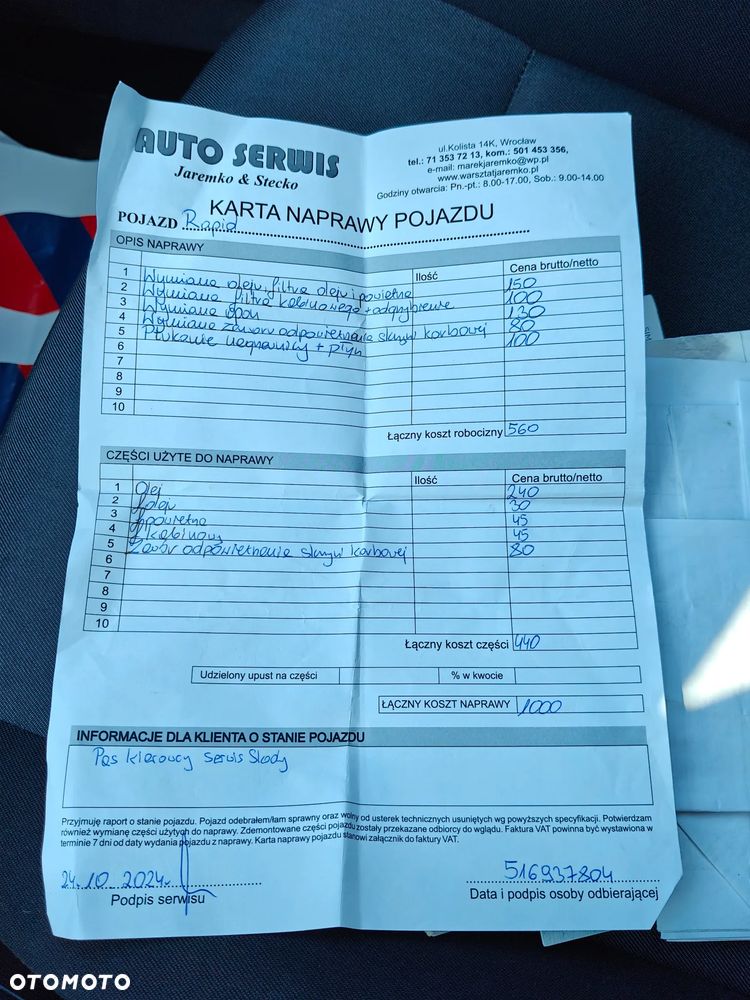 AUTO SERWIS
Jaremko & Stecko
ul.Kolista 14K, Wrocław
tel.: 71 353 72 13, kom.: 501 453 356,
e-mail: marekjaremko@wp.pl
www.warsztatjaremko.pl
Godziny otwarcia: Pn.-pt.: 8.00-17.00, Sob.: 9.00-14.00
KARTA NAPRAWY POJAZDU
POJAZD Rapid
OPIS NAPRAWY Ilość Cena brutto/netto
1 Wymiana oleju, filtra oleju i powietrza 150
2 Wymiana filtra kabinowego + odgrzybienie 100
3 Wymiana opon 130
4 Wymiana zaworu odpowietrzania skrzyni korbowej 80
5 Płukanie nagrzewnicy + płyn 100
6
7
8
9
10
Łączny koszt robocizny 560
CZĘŚCI UŻYTE DO NAPRAWY Ilość Cena brutto/netto
1 Olej 240
2 f.oleju 30
3 f.powietrza 45
4 f.kabinowy 45
5 Zawór odpowietrzania skrzyni korbowej 80
6
7
8
9
10
Łączny koszt części 440
Udzielony upust na części % w kwocie
ŁĄCZNY KOSZT NAPRAWY 1000
INFORMACJE DLA KLIENTA O STANIE POJAZDU
Pas kierowcy serwis Skody
Przyjmuję raport o stanie pojazdu. Pojazd odebrałem/łam sprawny oraz wolny od usterek technicznych usuniętych wg powyższych specyfikacji. Potwierdzam
również wymianę części użytych do naprawy. Zdemontowane części pojazdu zostały przekazane odbiorcy do wglądu. Faktura VAT powinna być wystawiona w
terminie 7 dni od daty wydania pojazdu z naprawy. Karta naprawy pojazdu stanowi załącznik do faktury VAT.
24.10.2024r 516937804
Podpis serwisu Data i podpis osoby odbierającej
OTOMOTO